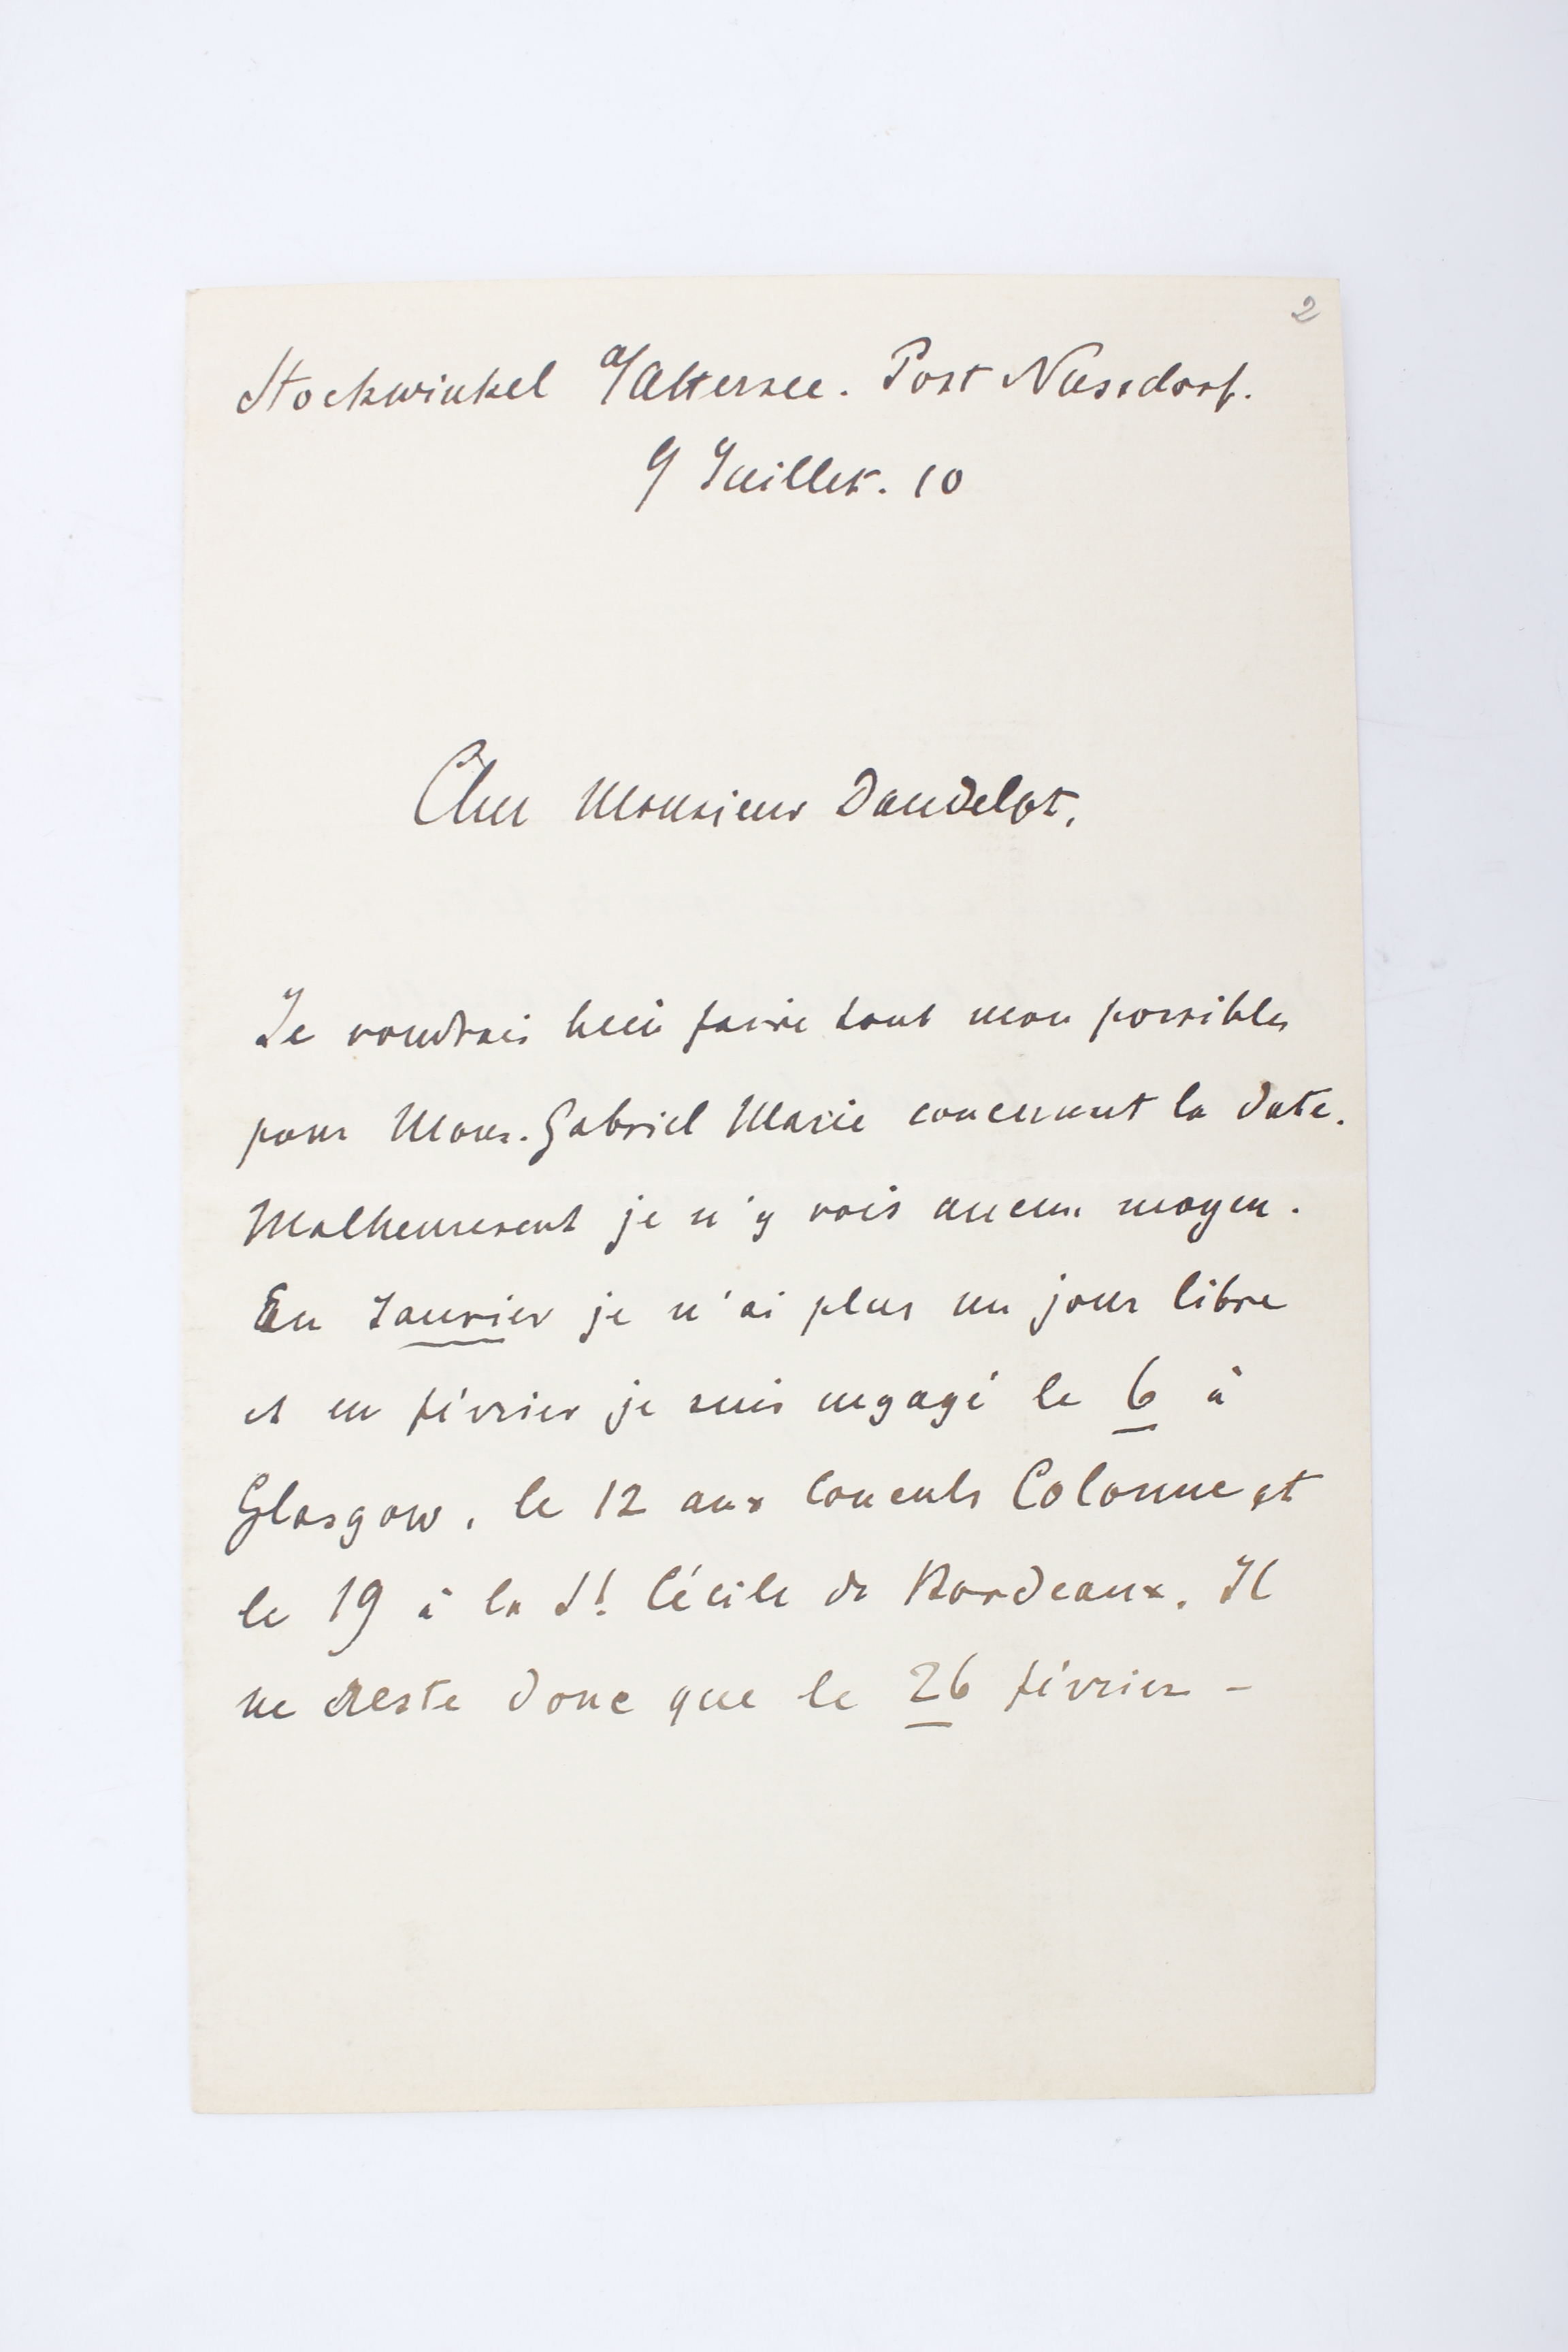 2
Stockwinkel a/Attersee. Post Nussdorf.
9 Juillet. 10
Cher Monsieur Dandelot,
Je voudrais bien faire tout mon possible
pour Mons. Gabriel Marie concernant la date.
Malheuresent je n'y vois aucun moyen.
En Janvier je n'ai plus un jour libre
et en février je suis engagé le 6 à
Glasgow, le 12 aux Concerts Colonne et
le 19 à la St. Cécile de Bordeaux. Il
ne reste donc que le 26 février -